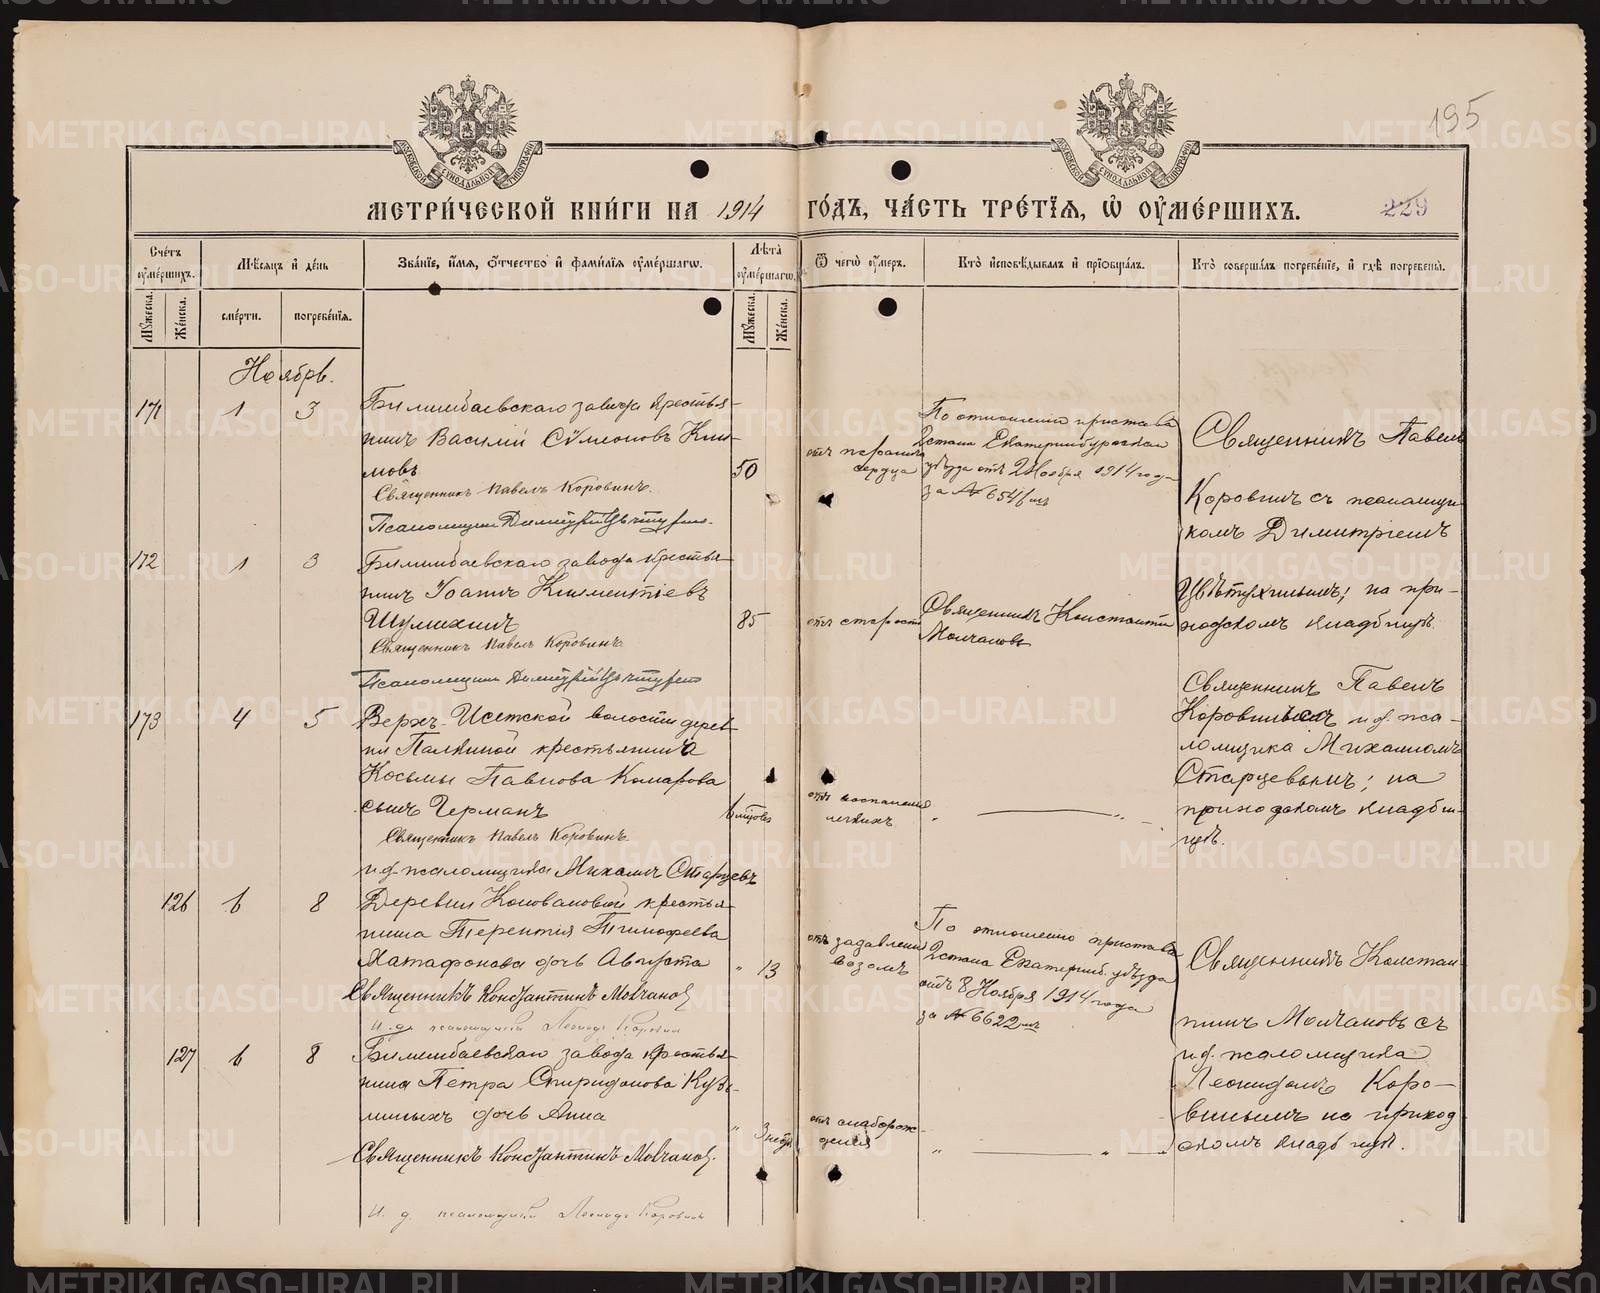 195
МЕТРИ́ЧЕСКОЙ КНИ́ГИ НА 1914 ГО́ДЪ, ЧА́СТЬ ТРЕ́ТІѦ, Ѡ ОУМЕ́РШИХЪ.
229
Счетъ оумершихъ.
Мѣсяцъ и день
Званіе, имя, отчество и фамилія оумершаго.
Лѣта оумершагω.
Ѿ чегω оумеръ.
Кто исповѣдывалъ и пріобщалъ.
Кто совершалъ погребеніе, и гдѣ погребены.
Мужеска.
Женска.
смерти.
погребенія.
Мужеска.
Женска.
Ноябрь.
171 1 3
Билимбаевскаго завода крестья-
нинъ Василій Сѵмеоновъ Кли-
мовъ
50
Священникъ Павелъ Коровинъ.
Псаломщикъ Димитрій Цвѣтухинъ.
отъ паралича
сердца
По отношенію пристава
2 стана Екатеринбургскаго
уѣзда отъ 2 Ноября 1914 года
за № 6546
Священникъ Павелъ
Коровинъ съ псаломщи-
комъ Димитріемъ
Цвѣтухинымъ; на при-
ходскомъ кладбищѣ.
172 1 3
Билимбаевскаго завода крестья-
нинъ Іоаннъ Климентіевъ
Шумихинъ
85
Священникъ Павелъ Коровинъ.
Псаломщикъ Димитрій Цвѣтухинъ
отъ старости
Священникъ Константинъ
Молчановъ
173 4 5
Верхъ-Исетской волости дерев-
ни Палкиной крестьянина
Косьмы Павлова Комарова
сынъ Германъ
6 мѣсяцев
Священникъ Павелъ Коровинъ.
и.д. псаломщика Михаилъ Старцевъ
отъ воспаленія
легкихъ
Священникъ Павелъ
Коровинъ съ и.д. пса-
ломщика Михаиломъ
Старцевымъ; на
приходскомъ кладби-
щѣ.
126 6 8
Деревни Коноваловой крестья-
нина Терентія Тимофеева
Хатафонова дочь Августа
" 13
Священникъ Константинъ Молчановъ
И. д. псаломщика Леонидъ Коровинъ
отъ задавленія
возомъ
По отношенію пристава
2 стана Екатеринб. уѣзда
отъ 8 Ноября 1914 года
за № 6622
Священникъ Констан-
тинъ Молчановъ съ
и.д. псаломщика
Леонидомъ Коро-
винымъ на приход-
скомъ кладбищѣ.
127 6 8
Билимбаевскаго завода крестья-
нина Петра Спиридонова Кузь-
миныхъ дочь Анна
" 3 нед.
Священникъ Константинъ Молчановъ.
И. д. псаломщика Леонидъ Коровинъ
отъ слаборож-
денія
" "